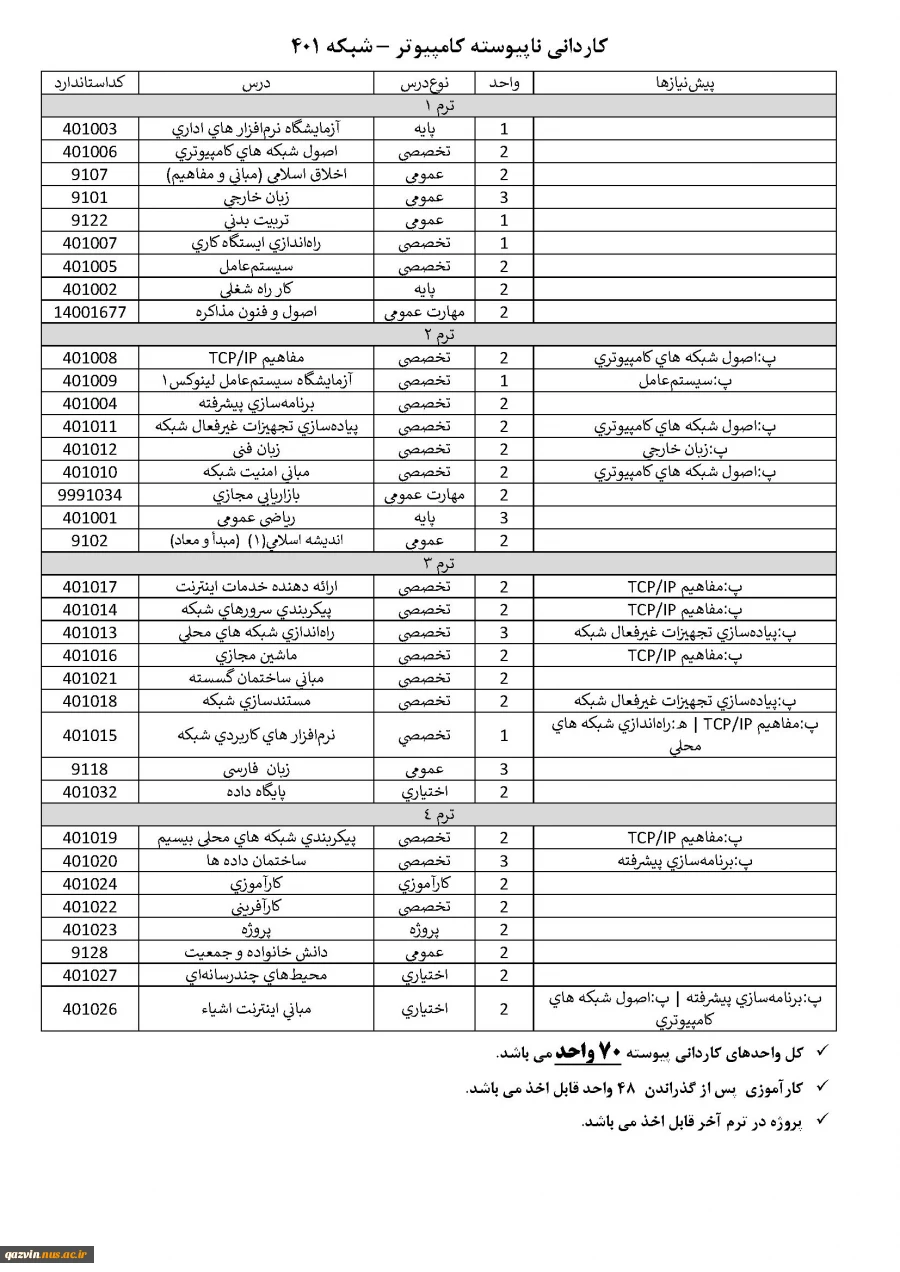 کاردانی ناپیوسته کامپیوتر – شبکه ۴۰۱
کداستاندارد درس نوع‌درس واحد پیش‌نیازها
ترم ۱
401003 آزمایشگاه نرم‌افزار هاي اداري پایه 1
401006 اصول شبکه هاي کامپیوتري تخصصی 2
9107 اخلاق اسلامی (مباني و مفاهیم) عمومی 2
9101 زبان خارجي عمومی 3
9122 تربیت بدني عمومی 1
401007 راه‌اندازي ایستگاه کاري تخصصی 1
401005 سیستم‌عامل تخصصی 2
401002 کار راه شغلی پایه 2
14001677 اصول و فنون مذاکره مهارت عمومی 2
ترم ۲
401008 مفاهیم TCP/IP تخصصی 2 پ:اصول شبکه هاي کامپیوتري
401009 آزمایشگاه سیستم‌عامل لینوکس۱ تخصصی 1 پ:سیستم‌عامل
401004 برنامه‌سازي پیشرفته تخصصی 2
401011 پیاده‌سازي تجهیزات غیرفعال شبکه تخصصی 2 پ:اصول شبکه هاي کامپیوتري
401012 زبان فنی تخصصی 2 پ:زبان خارجي
401010 مباني امنیت شبکه تخصصی 2 پ:اصول شبکه هاي کامپیوتري
9991034 بازاریابي مجازي مهارت عمومی 2
401001 ریاضی عمومی پایه 3
9102 اندیشه اسلامي(۱) (مبدأ و معاد) عمومی 2
ترم ۳
401017 ارائه دهنده خدمات اینترنت تخصصی 2 پ:مفاهیم TCP/IP
401014 پیکربندي سرورهاي شبکه تخصصی 2 پ:مفاهیم TCP/IP
401013 راه‌اندازي شبکه هاي محلي تخصصی 3 پ:پیاده‌سازي تجهیزات غیرفعال شبکه
401016 ماشین مجازي تخصصی 2 پ:مفاهیم TCP/IP
401021 مباني ساختمان گسسته تخصصی 2
401018 مستندسازي شبکه تخصصی 2 پ:پیاده‌سازي تجهیزات غیرفعال شبکه
401015 نرم‌افزار هاي کاربردي شبکه تخصصي 1 پ:مفاهیم TCP/IP | ه:راه‌اندازي شبکه هاي
محلي
9118 زبان فارسی عمومی 3
401032 پایگاه داده اختیاري 2
ترم ٤
401019 پیکربندي شبکه هاي محلی بیسیم تخصصی 2 پ:مفاهیم TCP/IP
401020 ساختمان داده ها تخصصی 3 پ:برنامه‌سازي پیشرفته
401024 کارآموزي کارآموزي 2
401022 کارآفرینی تخصصی 2
401023 پروژه پروژه 2
9128 دانش خانواده و جمعیت عمومی 2
401027 محیط‌هاي چندرسانه‌اي اختیاري 2
401026 مباني اینترنت اشیاء اختیاري 2 پ:برنامه‌سازي پیشرفته | پ:اصول شبکه هاي
کامپیوتري
✓ کل واحدهای کاردانی پیوسته ۷۰ واحد می باشد.
✓ کارآموزی پس از گذراندن ۴۸ واحد قابل اخذ می باشد.
✓ پروژه در ترم آخر قابل اخذ می باشد.
qazvin.nus.ac.ir